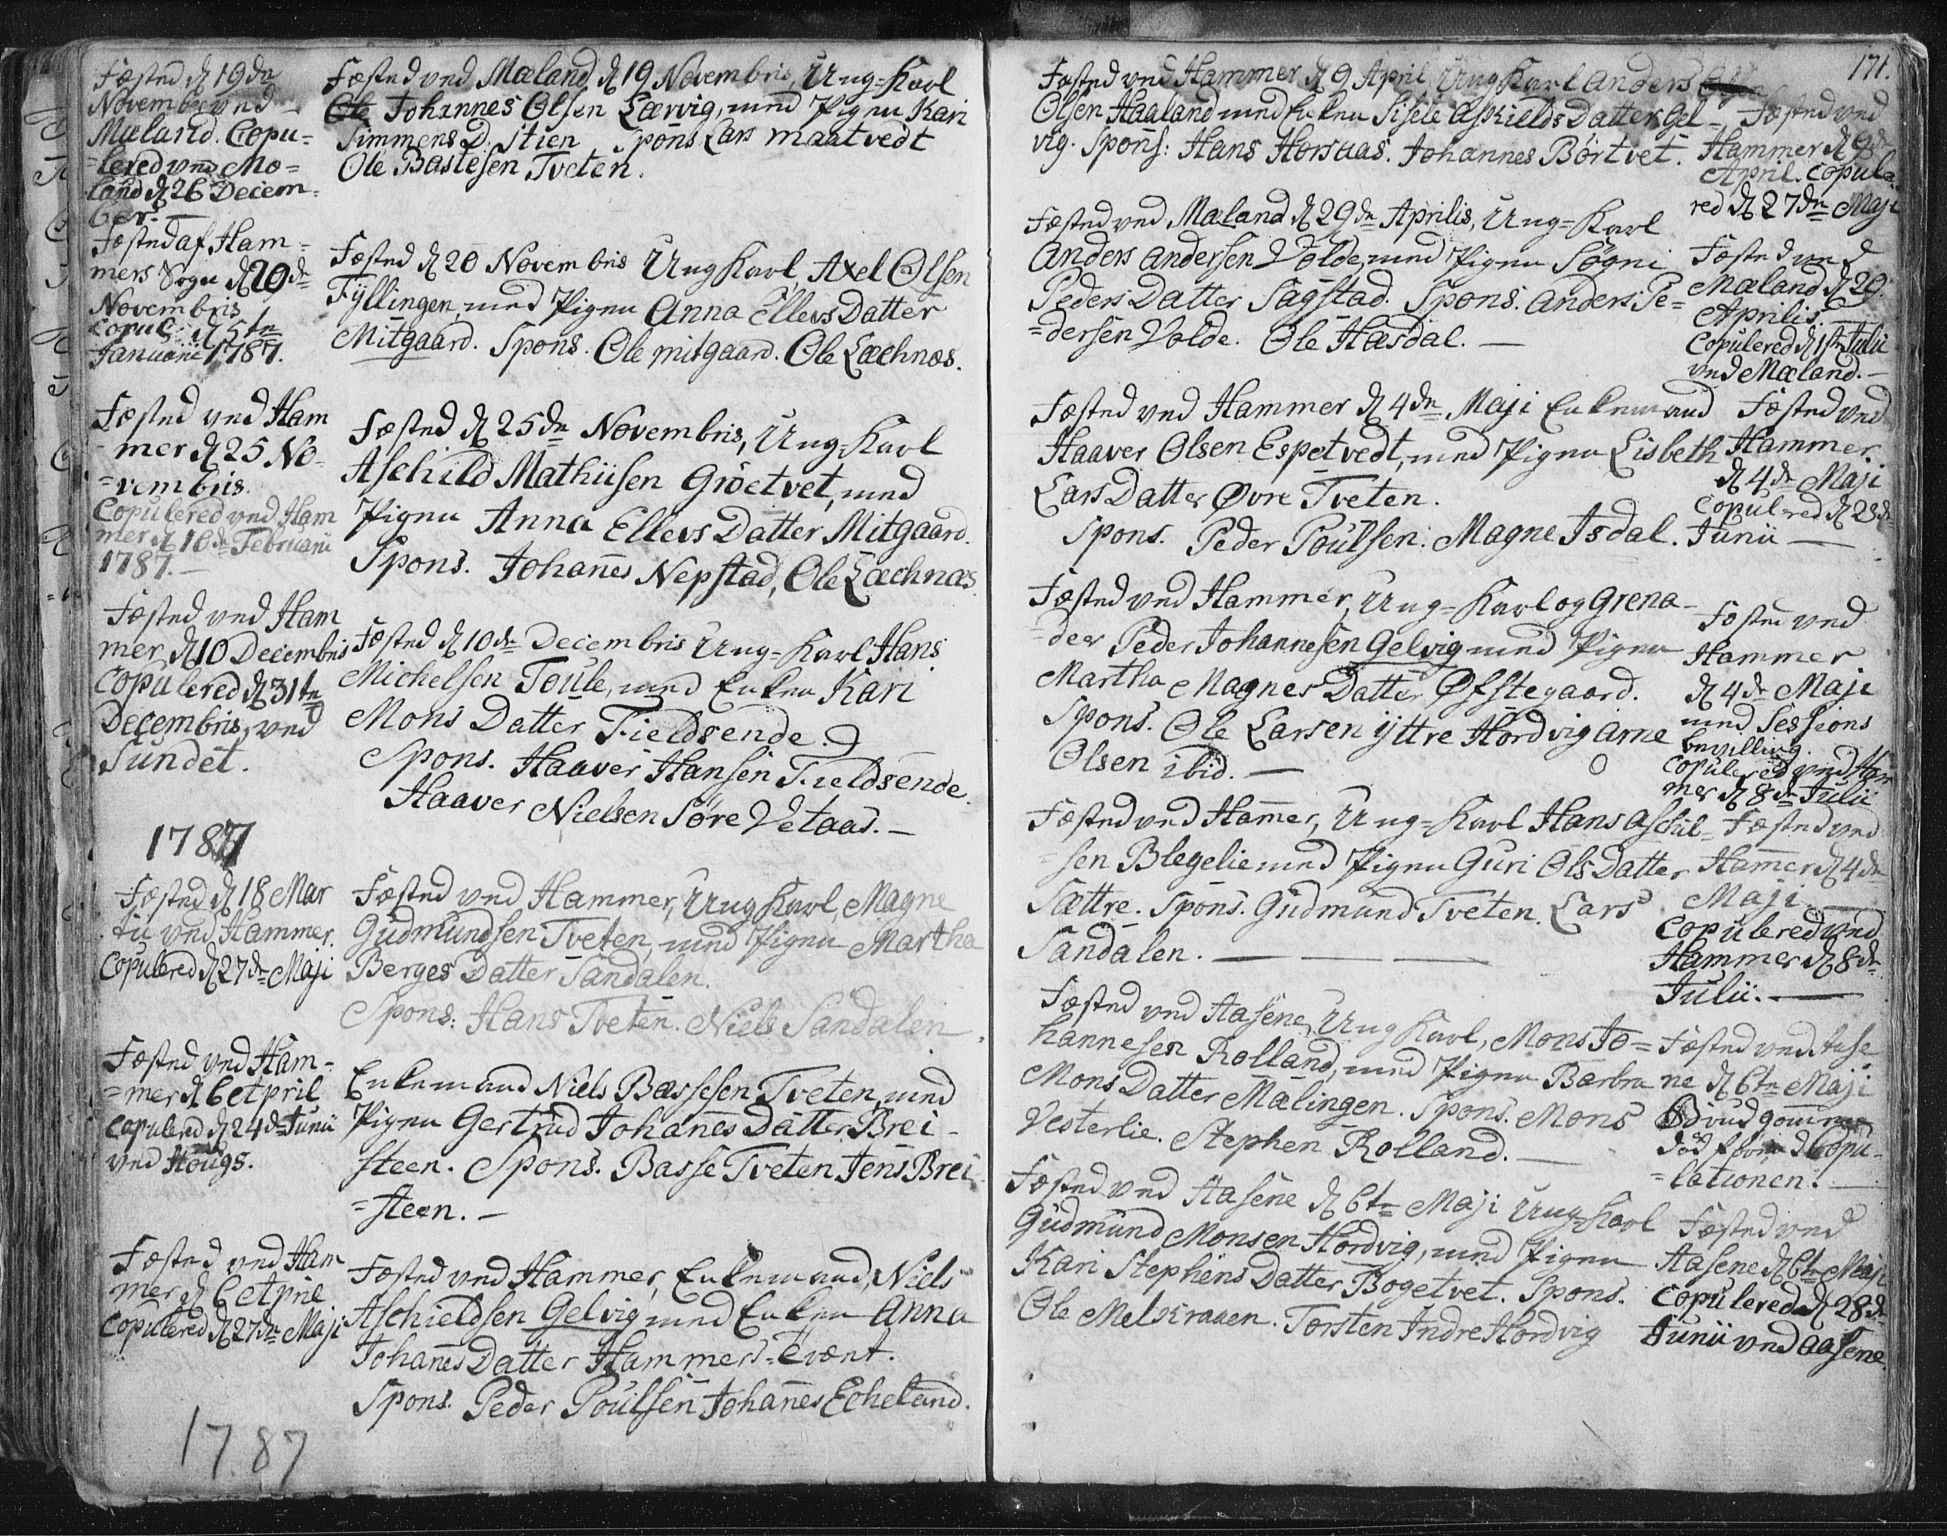 Fæsted d 19de
Novembr ved
Mæland. Copu-
lered ved Mo-
land d 26 Decem-
ber. —
Fæsted ved Mæland d 19 Novembris, Ung-Karl
Johannes Olsen Lærvig, med Pigen Kari
Simmens D. Stien Spons Lars Maatvedt
Ole Bastesen Tveten.
Fæsted af Ham-
mers Sogn d 20de
Novembris
Copul. d 5te
Januarii 1787.
Fæsted d 20 Novembris Ung Karl, Axel Olsen
Fyllingen, med Pigen Anna Ellevs Datter
Mitgaard. Spons. Ole Mitgaard. Ole Læchnæs.
Fæsted ved Ham
mer d 25 No-
=vembris.
Copulered ved Ham
mer d 18de Februarii
1787. —
Fæsted d 25de Novembris, Ung-Karl
Aschild Mathiisen Grøetvet, med
Pigen Anna Ellevs Datter Mitgaard.
Spons. Johannes Nepstad, Ole Læchnæs.
Fæsted ved Ham
mer d 10 Decembris
Copulered d 31te
Decembris, ved
Sundet.
Fæsted d 10de Decembris Ung-Karl Hans
Michelsen Toule, med Enken Kari
Mons Datter Fieldsende.
Spons. Haaver Hansen Fieldsende.
Haaver Nielsen Søre Vetaas. —
1787
Fæsted d 18 Mar
tii ved Hammer.
Copulered d 27de Maji
Fæsted ved Hammer, Ung Karl, Magne
Gudmundsen Tveten, med Pigen Martha
Berges Datter Sandalen.
Spons: Hans Tveten. Niels Sandalen
Fæsted ved Ham-
=mer d 6 April
Copulered d 24de Junii
ved Hougs.
Enkemand Niels Bassesen Tveten, med
Pigen Gertrud Johannes Datter Brei-
steen. Spons. Basse Tveten Jens Brei
=steen. —
Fæsted ved Ham
mer d 6 April
Copulered d 27de Maji
Fæsted ved Hammer, Enkemand, Niels
Aschieldsen Gelvig med Enken Anna
Johannes Datter Hammers-Tvænt.
Spons. Peder Poulsen Johannes Echeland.
1787
171.
Fæsted ved Hammer d 9 April Ung Karl Anders
Olsen Haaland med Enken Sisele Askields Datter Gel-
vig. Spons: Hans Horsaas. Johannes Børtvet.
Fæsted ved
Hammer d 9de
April. Copule
red d 27de Maji
Fæsted ved Mæland d 29de Aprilis, Ung-Karl
Anders Andersen Volde, med Pigen Søgni
Peders Datter Sagstad. Spons. Anders Pe-
=dersen Volde. Ole Hæsdal. —
Fæsted ved
Mæland d 29.
Aprilis. —
Copulered d 1ste Julii
ved Mæland. —
Fæsted ved Hammer d 4de Maji Enkemand
Haaver Olsen Espetvedt, med Pigen Lisbeth
Lars Datter Øvre Tveten.
Spons. Peder Poulsen. Magne Isdal.
Fæsted ved
Hammer
d 4de Maji
Copulered d 23de
Junii —
Fæsted ved Hammer, Ung-Karl og Grena-
=deer Peder Johannesen Gelvig med Pigen
Martha Magnes Datter Øfstegaard.
Spons. Ole Larsen yttre Hordvig Arne
Olsen ibid. —
Fæsted ved
Hammer
d 4de Maji
med Sessions
bevilling.
Copulered ved Ham
mer d 8de Julii
Fæsted ved Hamer, Ung-Karl Hans Aschil-
sen Blegelie med Pigen Guri Ols Datter
Sættre. Spons. Gudmund Tveten. Lars
Sandalen. — — —
Fæsted ved
Hamer d 4de
Maji. —
Copulered ved
Hammer d 8de
Julii. —
Fæsted ved Aasene, Ung Karl, Mons Jo-
hannesen Rolland, med Pigen Barbra
Mons Datter Mælingen. Spons. Mons
Vesterlie. Stephen Rolland. —
Fæsted ved Aase
ne d 6te Maji
Brudgommen
død for Copu-
=lationen. —
Fæsted ved Aasene d 6te Maji Ung-Karl
Gudmund Monsen Hordvig, med Pigen
Kari Stephens Datter Bogetvet. Spons.
Ole Melskraaen. Torsten Indre Hordvig
Fæsted ved
Aasene d 6te Maji
Copulered d 28de
Junii ved Aasene